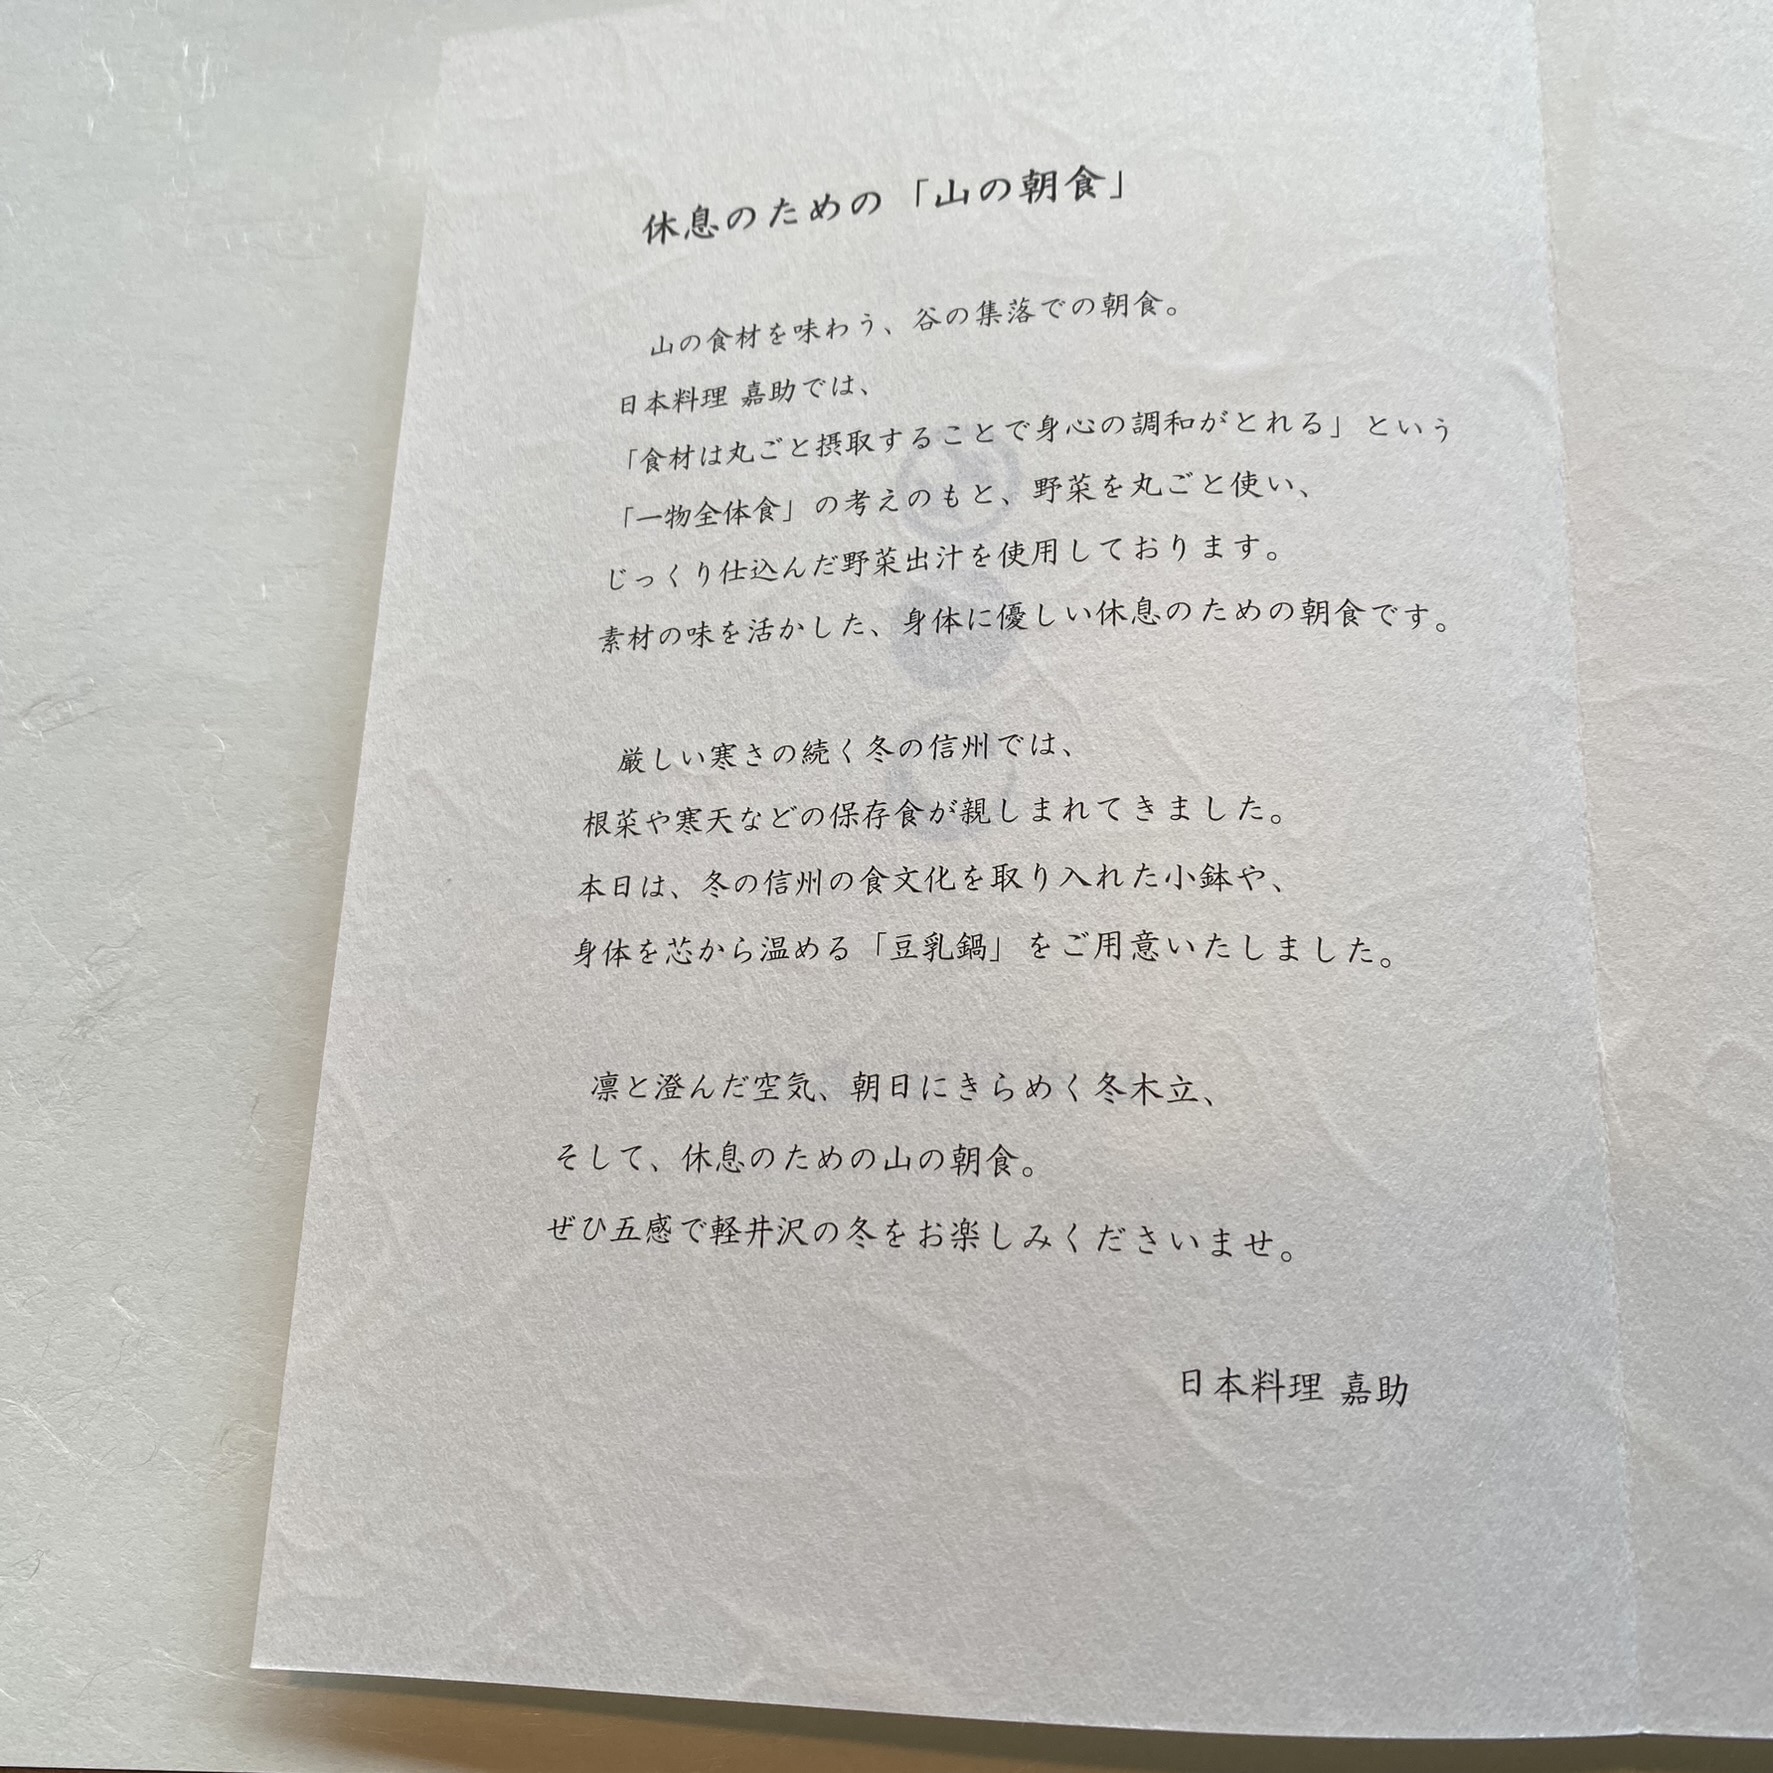 休息のための「山の朝食」
山の食材を味わう、谷の集落での朝食。
日本料理 嘉助では、
「食材は丸ごと摂取することで身心の調和がとれる」という
「一物全体食」の考えのもと、野菜を丸ごと使い、
じっくり仕込んだ野菜出汁を使用しております。
素材の味を活かした、身体に優しい休息のための朝食です。
厳しい寒さの続く冬の信州では、
根菜や寒天などの保存食が親しまれてきました。
本日は、冬の信州の食文化を取り入れた小鉢や、
身体を芯から温める「豆乳鍋」をご用意いたしました。
凛と澄んだ空気、朝日にきらめく冬木立、
そして、休息のための山の朝食。
ぜひ五感で軽井沢の冬をお楽しみくださいませ。
日本料理 嘉助